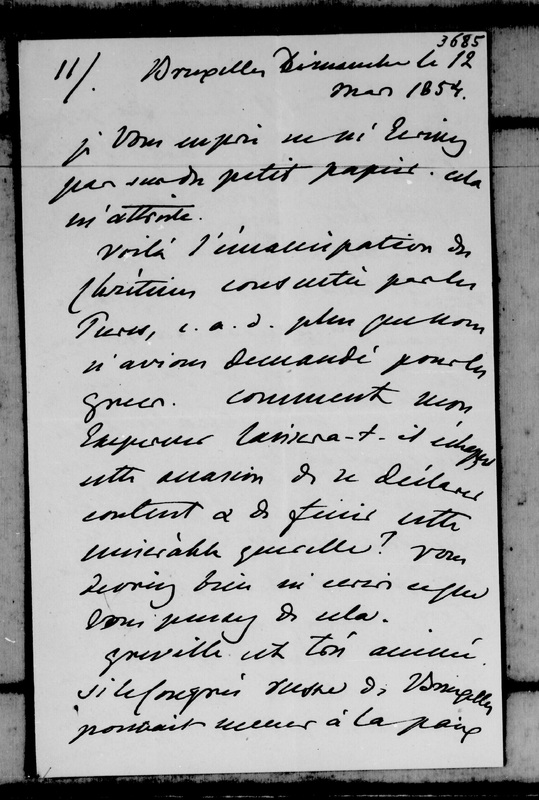 3685
11/. Bruxelles Dimanche le 12
Mars 1854.
je vous en prie ne m'écrivez
pas sur du petit papier. cela
m'attriste.
Voilà l'émancipation des
Chrétiens consentie par les
Turcs, c. a. d. plus que nous
n'avions demandé pour les
grecs. Comment mon
Empereur laissera-t-il échapper
cette occasion de se déclarer
content & de finir cette
misérable querelle? Vous
devriez bien m'écrire ce que
vous pensez de cela.
Greville est très animé.
si le Congrès russe de Bruxelles
pouvait mener à la paix